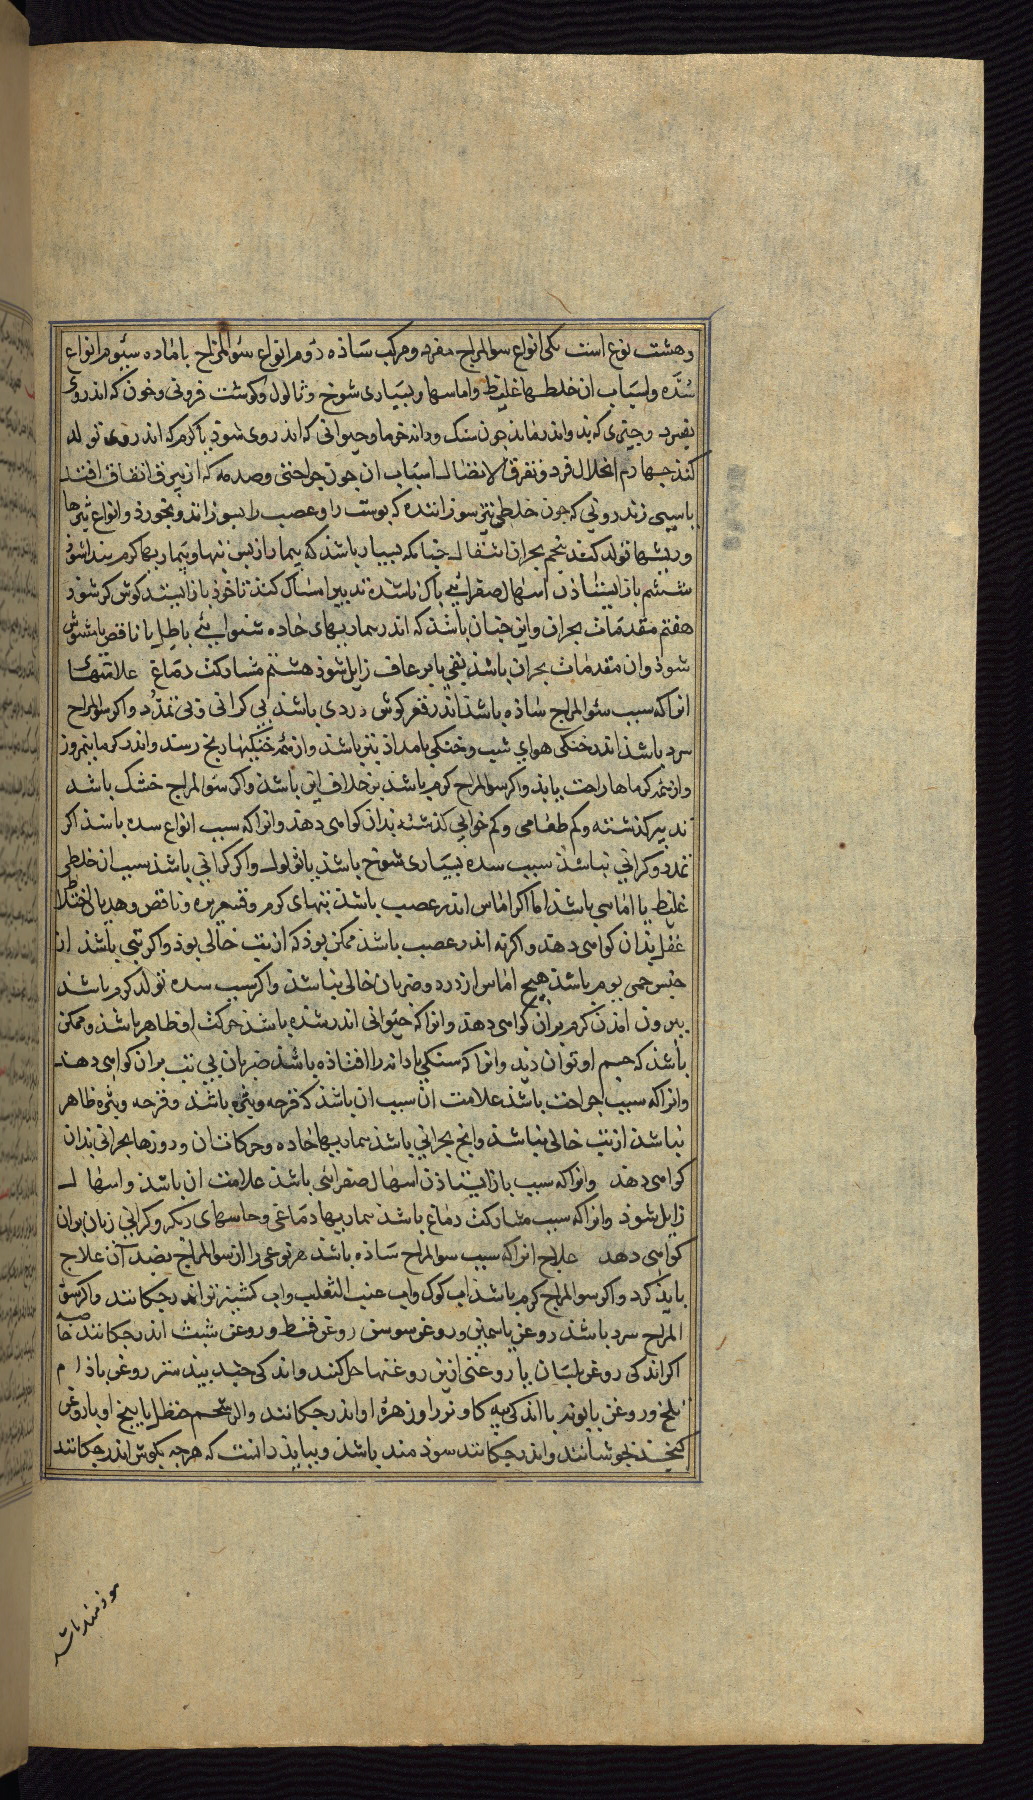 و هشت نوع است یکی انواع سوالمزاج مفرد و مرکب ساذه دوم انواع سوالمزاج باماده سیوم انواع
سده و اسباب ان خلطها غلیظ و اماسها و بسیاری شوخ و ثالول و کوشت فزونی و خون که اندروی
بفسرد و چیزی که بذو اندرماند چون سنک و دانه خرما و حیوانی که اندروی شوذ یا کرم که اندروی تولد
کند چهارم انحلال فرد و تفرق الاتصال اسباب ان چون جراحتی و صدمه که از بیرون اتفاق افتد
یا سببی اندرونی که چون خلطی تیز سوزاننده که پوست را و عصب را بسوزاند و بخورد و انواع بثرها
و ریشها تولد کند پنجم بحران انتقال چنانکه بسیار باشذ که بیمار از پس تبها و بیماریها کرم پیدا شوذ
ششم باز ایستاذن اسهال صفرائی باک باشده تدبیر امساک کند تا خوذ باز ایستد کوش کر شوذ
هفتم مقدمات بحران و این چنان باشذ که اندر بیماریهای حاده شنوایی باطل یا ناقص یا مشوش
شوذ و ان مقدمات بحران باشذ بقی یا برعاف زایل شوذ هشتم مشارکت دماغ علامتها
انرا که سبب سوالمزاج ساذه باشذ اندر قعر کوش دردی باشذ بی کرانی و بی تمدد و اکر سوالمزاج
سرد باشذ اندر خنکی هوای شب و خنکی بامداذ بتر باشذ و از همه خنکیها رنج رسد و اندر کرما نیمروز
و از همه کرماها راحت یابذ و اکر سوالمزاج کرم باشذ بر خلاف این باشذ و اکر سوالمزاج خشک باشد
تدبیر کذشته و کم طعامی و کم خوابی کذشته بدان کواهی دهد و انرا که سبب انواع سده باشذ اکر
تمدد و کرانی نباشذ سبب سده بسیاری شوخ باشذ یا ثولول و اکر کرانی باشذ سبب ان خلطی
غلیظ یا اماسی باشذ اما اکر اماس اندر عصب باشذ تبهای کرم و قشعریره و ناقض و هذیان و اختلاط
عقل بذان کواهی دهد و اکر نه اندر عصب باشذ ممکن بوذ که از تب خالی بوذ و اکر تبی باشذ از
جنس حمی یوم باشذ هیچ اماس از درد و ضربان خالی نباشذ و اکر سبب سده تولد کرم باشذ
بیرون امذن کرم بران کواهی دهد و انرا که حیوانی اندر شده باشذ حرکت او ظاهر باشذ و ممکن
باشذ که جسم او توان دید و انرا که سنکی یا دانه را افتاذه باشذ ضربان بی تب بران کواهی دهد
و انرا که سبب جراحت باشذ علامت ان سبب ان باشذ که قرحه و بثره باشذ و قرحه و بثره ظاهر
نباشذ از تب خالی نباشذ و انچ بحرانی باشذ بیماریها حاده و حرکات ان و روزها بحرانی بذان
کواهی دهد و انرا که سبب باز ایستاذن اسهال صفرایی باشذ علامت ان باشذ و اسهال
زایل شوذ و انرا که سبب مشارکت دماغ باشذ بیماریها دماغی و حاسهای دیکر و کرانی زبان بران
کواهی دهد علاج انرا که سبب سوالمزاج ساذه باشذ هر نوعی را از سوالمزاج بضد آن علاج
بایذ کرد و اکر سوالمزاج کرم باشذ اب کوک و اب عنب الثعلب و اب کشنیز تر اندر چکانند و اکر سو
المزاج سرد باشذ روغن یاسمین و روغن سوسن روغن قسط و روغن شبث اندر چکانند خاصه
اکر اندکی روغن بلسان یا روغنی ازین روغنها حل کنند و اندکی جند بیدستر روغن باذام
تلخ و روغن بابونه با اندکی پیه کاو نر را و زهرهٔ او اندر چکانند و اکر شحم حنظل یا بیخ او با روغن
کنجد بجوشانند و اندر چکانند سوذمند باشذ و ببایذ دانست که هرچه بکوش اندر چکانند
سوذمند باشد